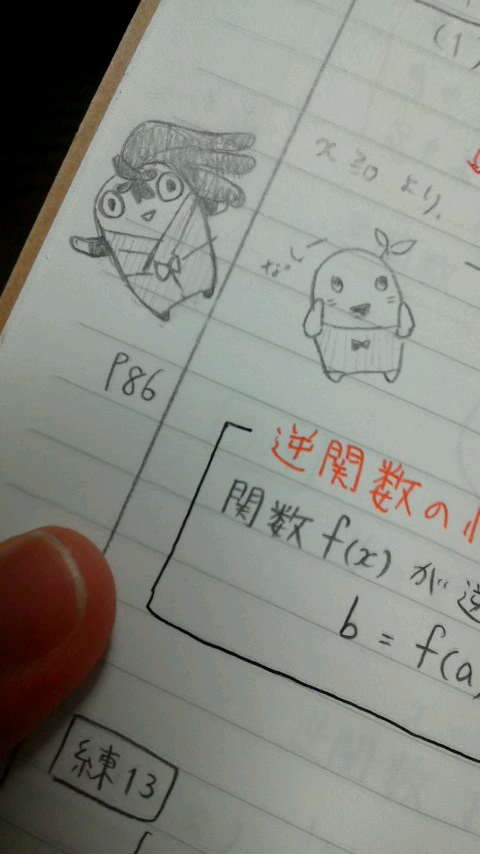 (1)
x ≧ 0 より,
なしー
P86
逆関数の
関数 f(x) が逆
b = f(a)
練13